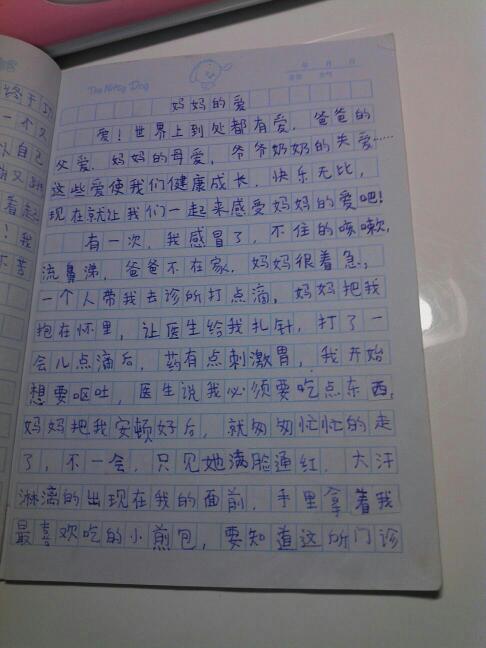 The Noisy Dog
年 月 日
妈妈的爱
爱！世界上到处都有爱，爸爸的
父爱，妈妈的母爱，爷爷奶奶的关爱……
这些爱使我们健康成长，快乐无比，
现在就让我们一起来感受妈妈的爱吧！
有一次，我感冒了，不住的咳嗽，
流鼻涕，爸爸不在家，妈妈很着急，
一个人带我去诊所打点滴，妈妈把我
抱在怀里，让医生给我扎针，打了一
会儿点滴后，药有点刺激胃，我开始
想要呕吐，医生说我必须要吃点东西，
妈妈把我安顿好后，就匆匆忙忙的走
了，不一会，只见她满脸通红，大汗
淋漓的出现在我的面前，手里拿着我
最喜欢吃的小煎包，要知道这所门诊